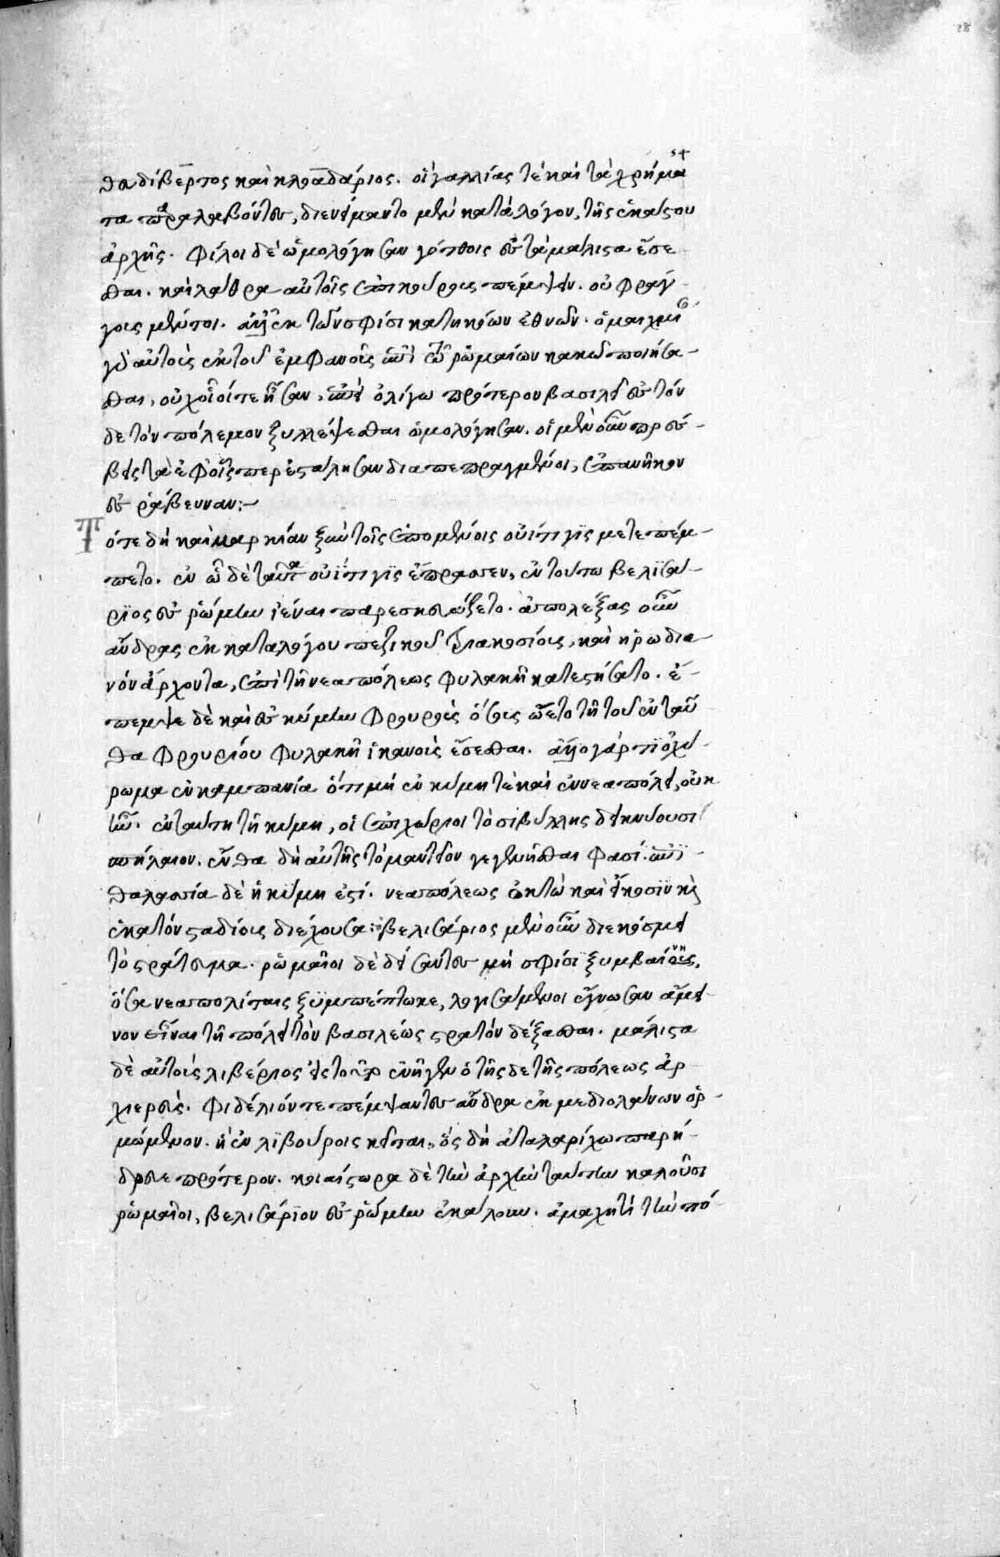 28
54
θαδίβερτος καὶ κλοαδάριος. οἳ γαλλίας τὲ καὶ τὰ χρήμα
τα παραλαβόντες, διενείμαντο μὲν κατὰ λόγον, τῆς ἑκάστου
ἀρχῆς. φίλοι δὲ ὡμολόγησαν γότθοις ἐς τὰ μάλιστα ἔσε-
θαι. καὶ λάθρα αὐτοῖς ἐπικούρους πέμψειν. οὐ φράγ-
γους μέντοι. ἀλλ' ἐκ τῶν σφίσι κατηκόων ἐθνῶν. ὁμαιχμί
γὰρ αὐτοῖς ἐκ τοῦ ἐμφανοῦς ἐπὶ τῷ ῥωμαίων κακῷ ποιήσα-
θαι, οὐχ οἷοί τε ἦσαν, ἐπεὶ ὀλίγω πρότερον βασιλεῖ ἐς τόν
δε τὸν πόλεμον ξυλλήψεθαι ὡμολόγησαν. οἱ μὲν οὖν πρέσ-
βεις τὰ ἐφ' οἷσπερ ἐστάλησαν διαπεπραγμένοι, ἐπανῆκον
ἐς ῥάβενναν:-
Τότε δὴ καὶ μαρκίαν ξὺν τοῖς ἑπομένοις οὐίττιγις μετεπέμ-
πετο. ἐν ᾧ δὲ ταῦτα οὐίττιγις ἔπρασσεν, ἐν τούτω βελισά-
ριος ἐς ῥώμην ἰέναι παρεσκευάζετο. ἀπολέξας οὖν
ἄνδρας ἐκ καταλόγου πεζικοῦ τριακοσίους, καὶ ἡρωδια
νὸν ἄρχοντα, ἐπὶ τῆ νεαπόλεως φυλακῆ κατεστήσατο. ἔ-
πεμψε δὲ καὶ ἐς κύμην φρουροὺς ὅσους ᾤετο τῆ τοῦ ἐνταῦ
θα φρουρίου φυλακῆ ἱκανοὺς ἔσεθαι. ἄλλο γάρ τι ὀχύ-
ρωμα ἐν καμπανία ὅτι μὴ ἐν κύμη τὲ καὶ ἐν νεαπόλει, οὐκ
ἦν. ἐν ταύτη τῆ κύμη, οἱ ἐπιχώριοι τὸ σιβύλλης δεικνύουσι
σπήλαιον. ἔνθα δὴ αὐτῆς τὸ μαντεῖον γεγενῆθαι φασί. ἐπι-
θαλασσία δὲ ἡ κύμη ἐστί. νεαπόλεως ὀκτὼ καὶ εἴκοσιν κ
ἑκατὸν σταδίοις διέχουσα: βελισάριος μὲν οὖν διεκόσμει
τὸ στράτευμα. ῥωμαῖοι δὲ δείσαντες μὴ σφίσι ξυμβαίη,
ὅσα νεαπολίταις ξυμπέπτωκε, λογισάμενοι ἔγνωσαν ἄμει-
νον εἶναι τῆ πόλει τὸν βασιλέως στρατὸν δέξαθαι. μάλιστα
δὲ αὐτοὺς λιβέριος εἰς τοῦτο ἐνῆγεν ὁ τῆς δε τῆς πόλεως ἀρ-
χιερεύς. φιδέλιόν τε πέμψαντες ἄνδρα ἐκ μεδιολάνων ὁρ-
μώμενον. ἢ ἐν λιβούροις κεῖται, ὃς δὴ ἀταλαρίχω παρή-
δρευε πρότερον. κοιαίστωρα δὲ τὴν ἀρχὴν ταύτην καλοῦσι
ῥωμαῖοι, βελισάριον ἐς ῥώμην ἐκάλουν. ἀμαχητὶ τὴν πό-